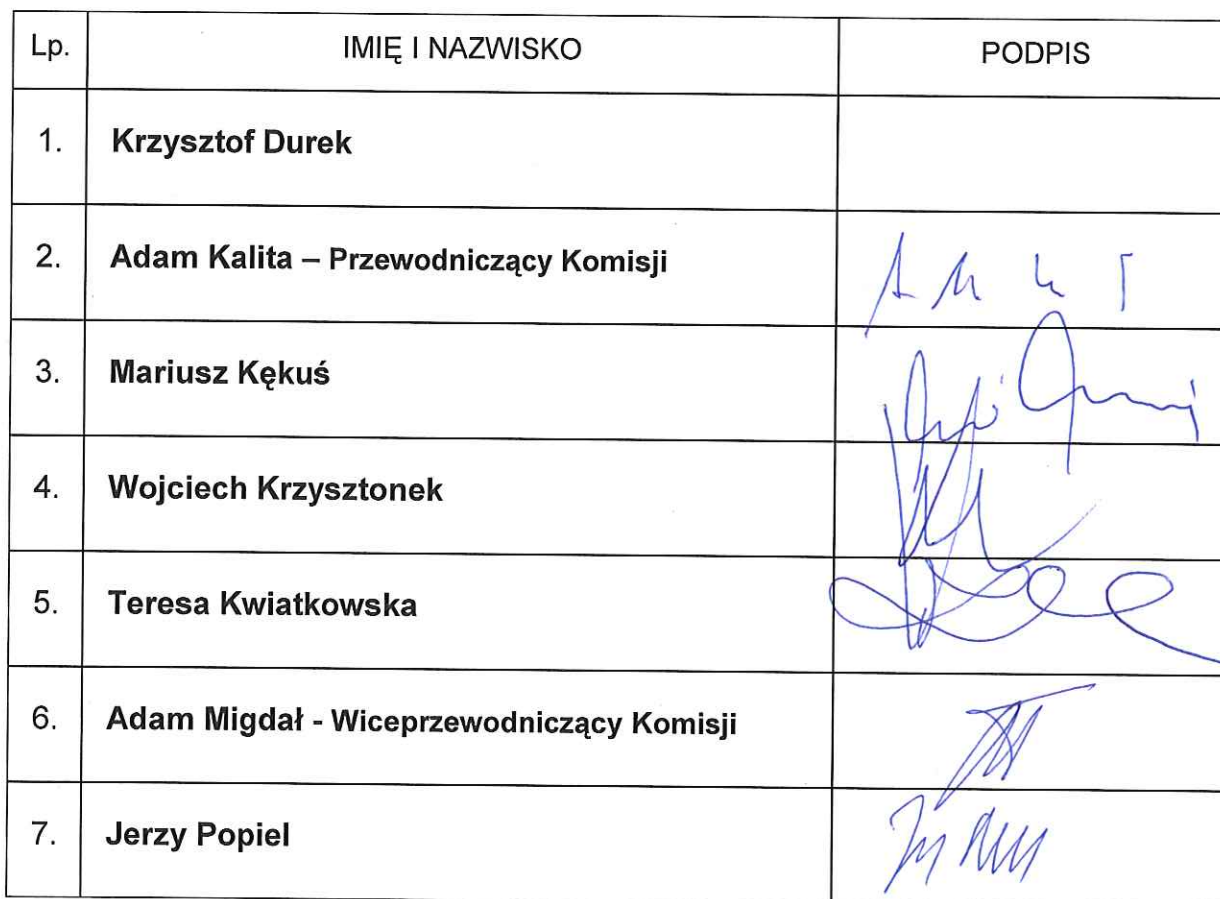 Lp. IMIĘ I NAZWISKO PODPIS
1. Krzysztof Durek
2. Adam Kalita – Przewodniczący Komisji
3. Mariusz Kękuś
4. Wojciech Krzysztonek
5. Teresa Kwiatkowska
6. Adam Migdał - Wiceprzewodniczący Komisji
7. Jerzy Popiel